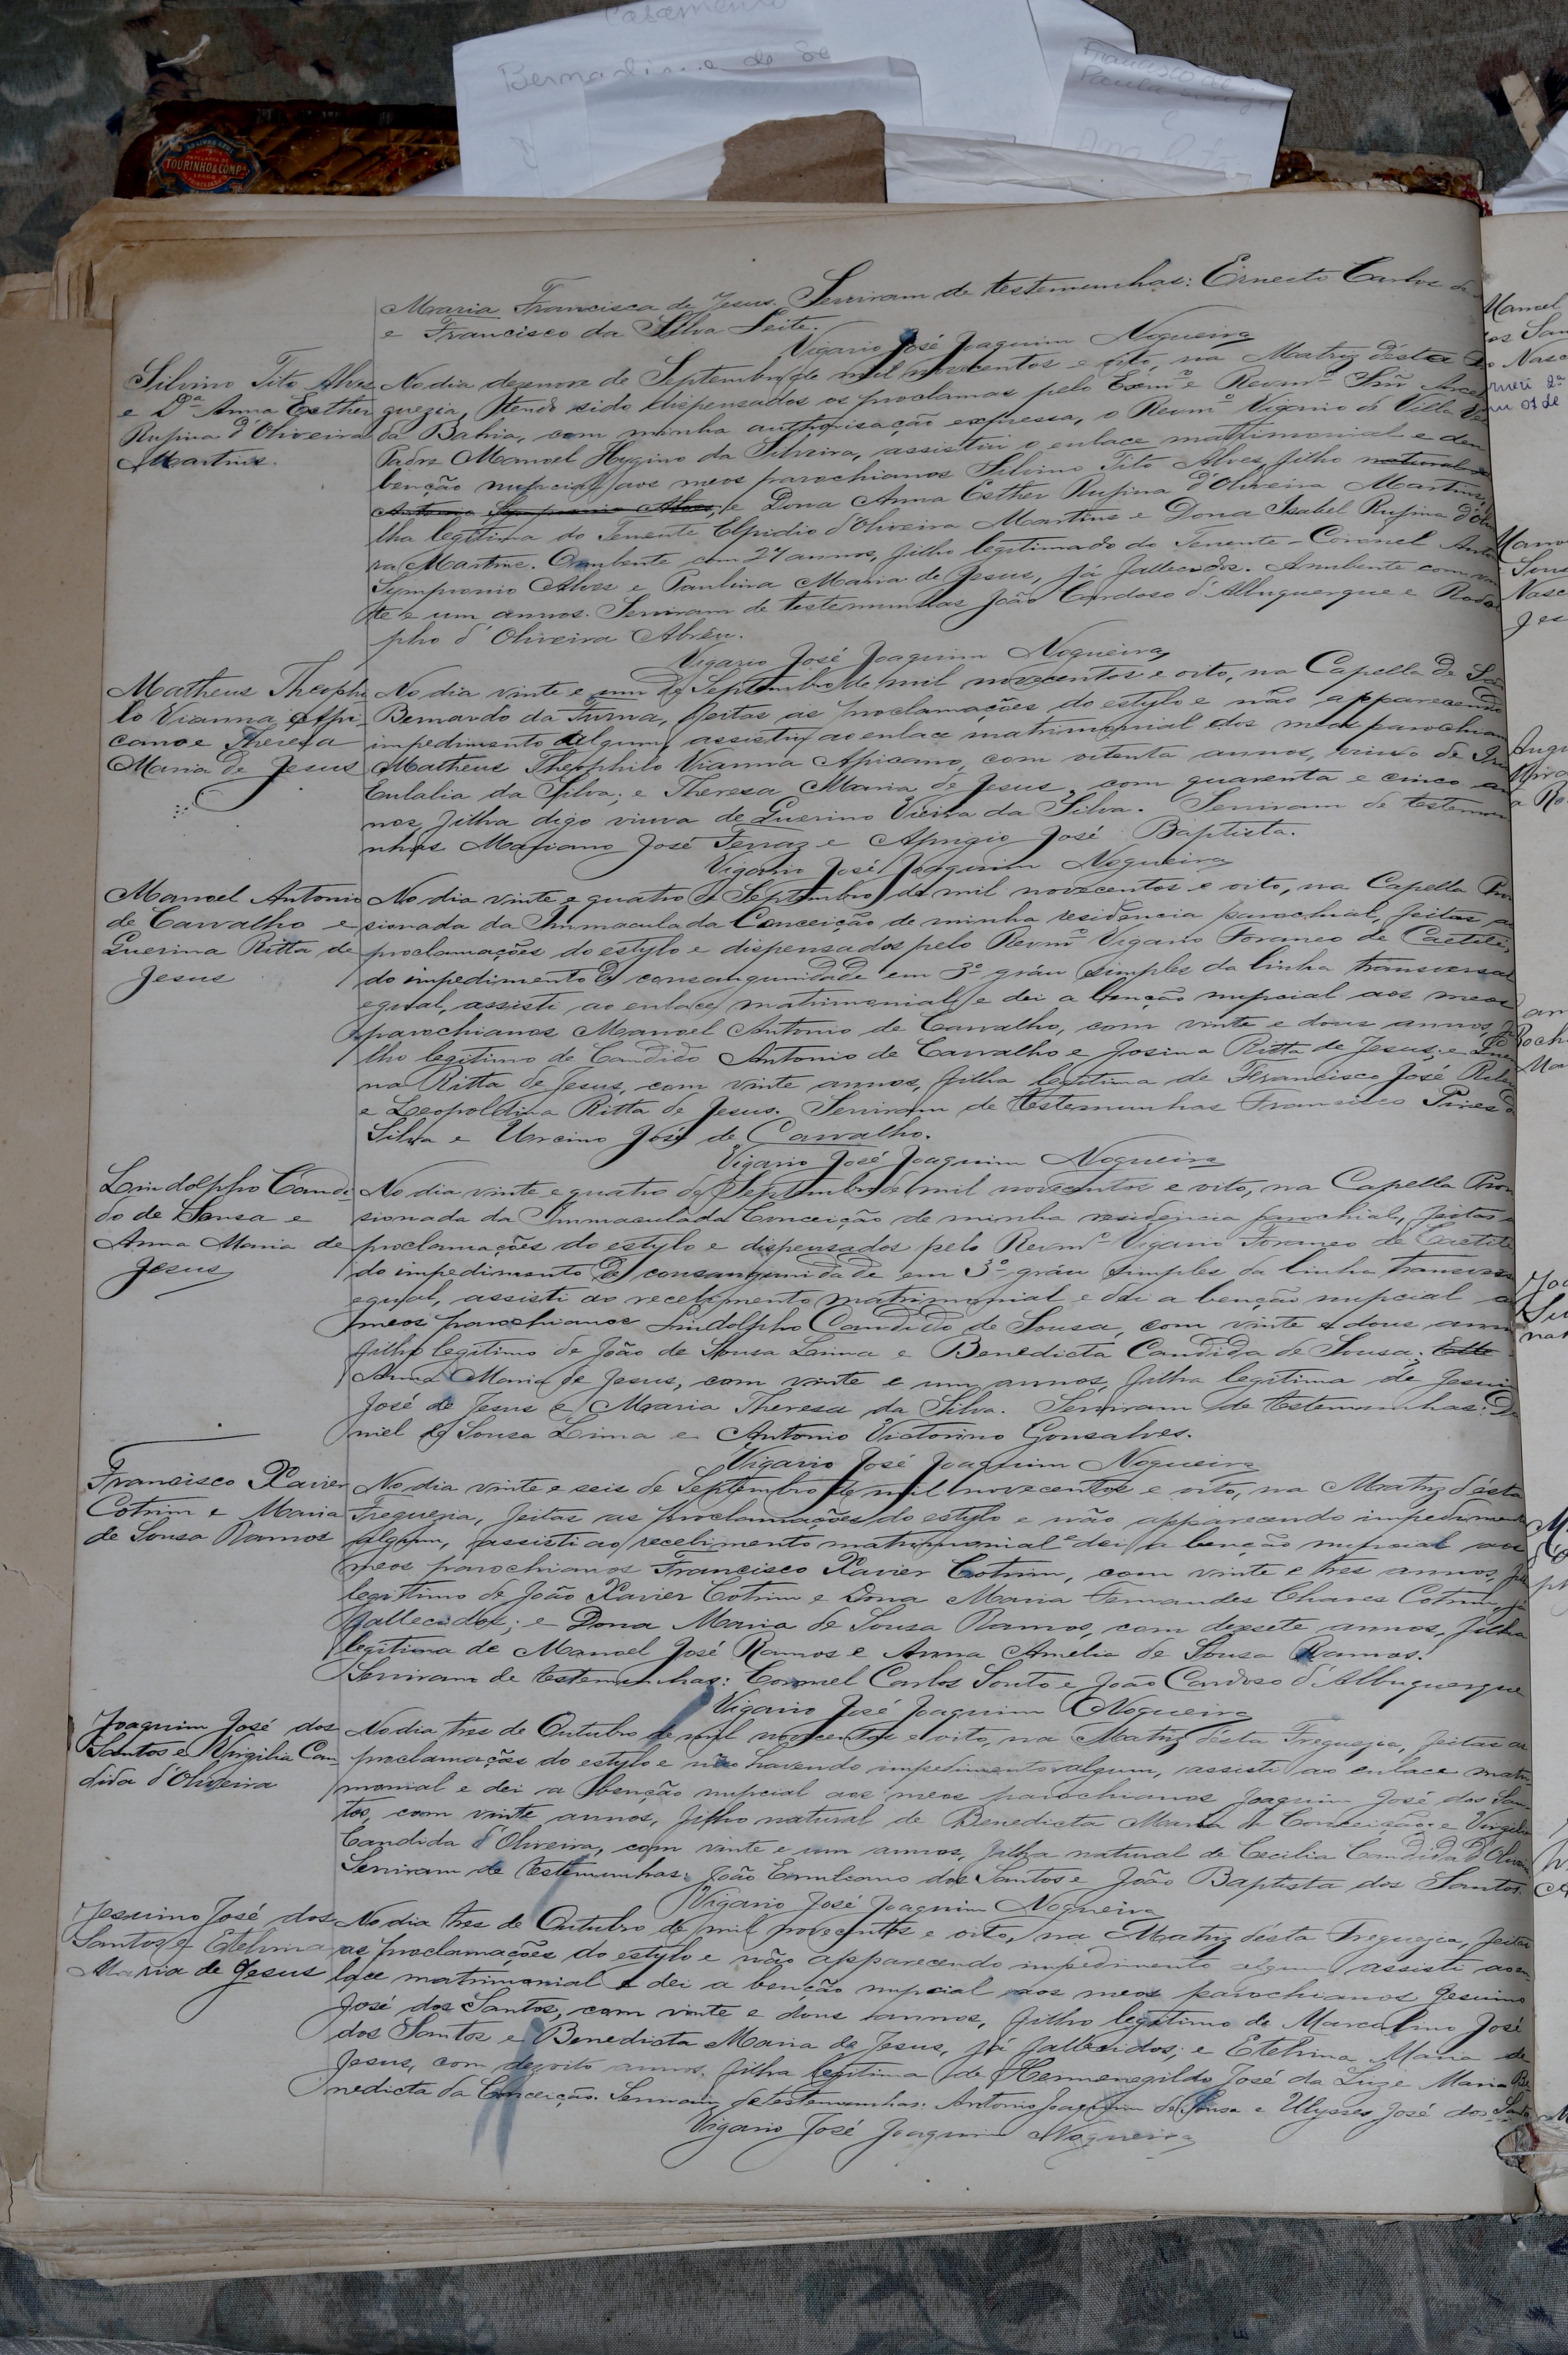 Casamento
Bernadino de
Francisco de
Paula
TOURINHO & COMP.
Maria Francisca de Jesus. Serviram de testemunhas: Ernesto Carlos
e Francisco da Silva Leite.
Vigario José Joaquim Nogueira
Silvino Tito Alves
e Dª Anna Esther
Rufina d'Oliveira
Martins.
No dia dezenove de Septembro de mil novecentos e oito, na Matriz d'ésta
guezia, tendo sido dispensados os proclamas pelo Exmº e Revmº Snr
da Bahia, com minha authorisação expressa, o Revmº Vigario de Villa
Padre Manoel Hygino da Silveira, assistiu o enlace matrimonial e deu
benção nupcial aos meos parochianos Silvino Tito Alves, filho natural
Antonio Symphronio Alves, e Dona Anna Esther Rufina d'Oliveira Martins,
lha legitima do Tenente Elpidio d'Oliveira Martins e Dona Isabel Rufina d'Oli
ra Martins. O nubente com 27 annos, filho legitimado do Tenente-Coronel Anto
Symphronio Alves e Paulina Maria de Jesus, já fallecidos. A nubente com vin
te e um annos. Serviram de testemunhas João Cardoso d'Albuquerque e Rodol
pho d'Oliveira Abrêu.
Vigario José Joaquim Nogueira
Matheus Theophi
lo Vianna Apri
cano e Thereza
Maria de Jesus
No dia vinte e um de Septembro de mil novecentos e oito, na Capella de São
Bernardo da Furna, feitas as proclamações do estylo e não apparecendo
impedimento algum, assisti ao enlace matrimonial dos meos parochian
Matheus Theophilo Vianna Apricano, com oitenta annos, viuvo de
Eulalia da Silva; e Theresa Maria de Jesus, com quarenta e cinco an
nos, filha digo viuva de Guerino Vieira da Silva. Serviram de testemu
nhas Mariano José Ferraz e Aprigio José Baptista.
Vigario José Joaquim Nogueira
Manoel Antonio
de Carvalho e
Guerina Ritta de
Jesus
No dia vinte e quatro de Septembro de mil novecentos e oito, na Capella Provi
sionada da Immaculada Conceição de minha residencia parochial, feitas as
proclamações do estylo e dispensados pelo Revmº Vigario Foraneo de Caetité,
do impedimento de consanguinidade em 3º gráu simples da linha transversal
egual, assisti ao enlace matrimonial e dei a benção nupcial aos meos
parochianos Manoel Antonio de Carvalho, com vinte e dous annos, fi
lho legitimo de Candido Antonio de Carvalho e Josina Ritta de Jesus; e Gueri
na Ritta de Jesus, com vinte annos, filha legitima de Francisco José
e Leopoldina Ritta de Jesus. Serviram de testemunhas Francisco Pires da
Silva e Urcino José de Carvalho.
Vigario José Joaquim Nogueira
Lindolpho Candi
do de Sousa e
Anna Maria de
Jesus
No dia vinte e quatro de Septembro de mil novecentos e oito, na Capella Provi
sionada da Immaculada Conceição de minha residencia parochial, feitas a
proclamações do estylo e dispensados pelo Revmº Vigario Foraneo de Caetité
do impedimento de consanguinidade em 3º gráu simples da linha transversal
egual, assisti ao recebimento matrimonial e dei a benção nupcial a
meos parochianos Lindolpho Candido de Sousa, com vinte e dous ann
filho legitimo de João de Sousa Lima e Benedicta Candida de Sousa; Elle
Anna Maria de Jesus, com vinte e um annos, filha legitima de Jesuino
José de Jesus e Maria Theresa da Silva. Serviram de testemunhas: Da
niel de Sousa Lima e Antonio Victorino Gonsalves.
Vigario José Joaquim Nogueira
Francisco Xavier
Cotrim e Maria
de Sousa Ramos
No dia vinte e seis de Septembro de mil novecentos e oito, na Matriz d'ésta
Freguezia, feitas as proclamações do estylo e não apparecendo impedimento
algum, assisti ao recebimento matrimonial e dei a benção nupcial aos
meos parochianos Francisco Xavier Cotrim, com vinte e tres annos, filho
legitimo de João Xavier Cotrim e Dona Maria Fernandes Chaves Cotrim, já
fallecidos; e Dona Maria de Sousa Ramos, com desete annos, filha
legitima de Manoel José Ramos e Anna Amelia de Sousa Ramos.
Serviram de testemunhas: Coronel Carlos Souto e João Cardoso d'Albuquerque
Vigario José Joaquim Nogueira
Joaquim José dos
Santos e Virgilia Can
dida d'Oliveira
No dia tres de Outubro de mil novecentos e oito, na Matriz d'ésta Freguezia, feitas as
proclamações do estylo e não havendo impedimento algum, assisti ao enlace matri
monial e dei a benção nupcial aos meos parochianos Joaquim José dos San
tos, com vinte annos, filho natural de Benedicta Maria da Conceição; e Virgilia
Candida d'Oliveira, com vinte e um annos, filha natural de Cecilia Candida d'Oliveira
Serviram de testemunhas: João Emiliano dos Santos e João Baptista dos Santos.
Vigario José Joaquim Nogueira
Jesuino José dos
Santos e Etelvina
Maria de Jesus
No dia tres de Outubro de mil novecentos e oito, na Matriz d'ésta Freguezia, feitas
as proclamações do estylo e não apparecendo impedimento algum assisti ao en
lace matrimonial e dei a benção nupcial aos meos parochianos Jesuino
José dos Santos, com vinte e dous annos, filho legitimo de Marcolino José
dos Santos e Benedicta Maria de Jesus, já fallecidos; e Etelvina Maria de
Jesus, com dezoito annos, filha legitima de Hermenegildo José da Luz e Maria Be
nedicta da Conceição. Serviram de testemunhas: Antonio Joaquim de Sousa e Ulysses José dos Santos
Vigario José Joaquim Nogueira